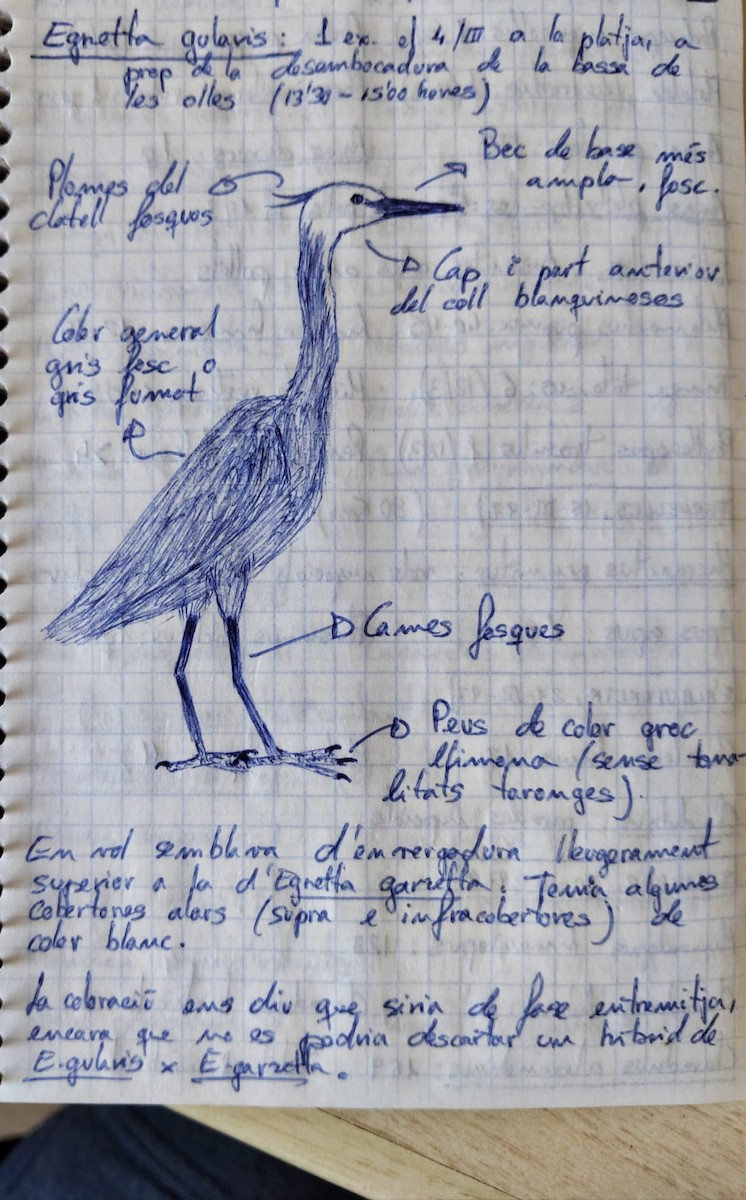 Egretta gularis: 1 ex. el 4/III a la platja, a
prop de la desembocadura de la bassa de
les olles (13'30 - 15'00 hores)
Plomes del
clatell fosques
Bec de base més
ampla, fosc.
Cap i part anterior
del coll blanquinoses
Color general
gris fosc o
gris fumat
Cames fosques
Peus de color groc
llimona (sense tona-
litats taronges).
En vol semblava d'envergadura lleugerament
superior a la d'Egretta garzetta. Tenia algunes
cobertores alars (supra e infracobertores) de
color blanc.
La coloració ens diu que siria de fase entremitja,
encara que no es podria descartar un híbrid de
E. gularis x E. garzetta.